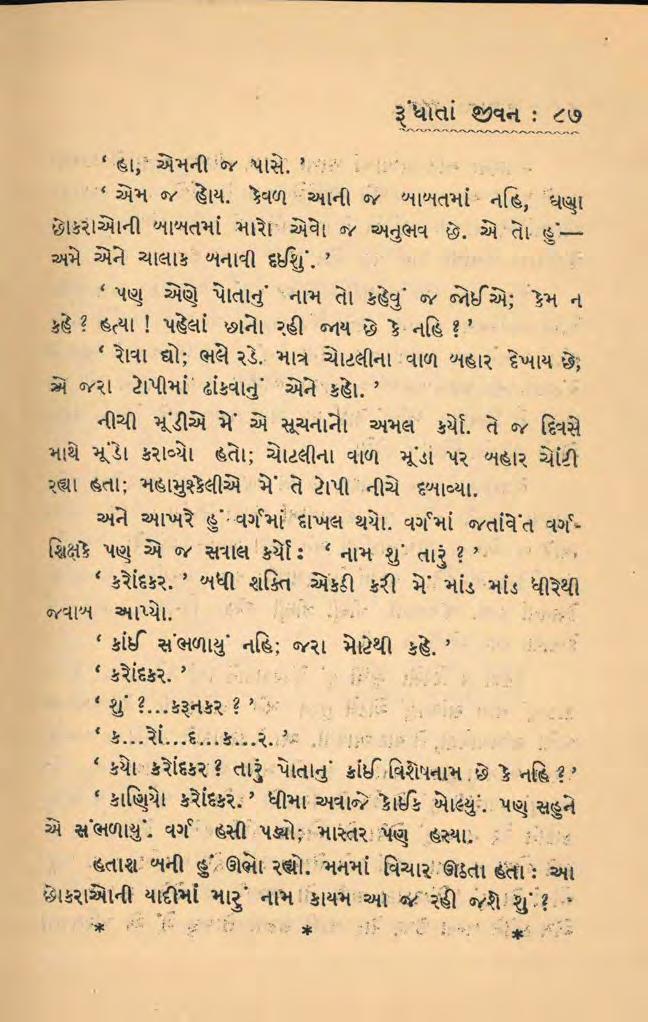 રૂંધાતાં જીવન : ૮૭
‘ હા, એમની જ પાસે. ’
‘ એમ જ હોય. કેવળ આની જ બાબતમાં નહિ, ઘણા
છોકરાઓની બાબતમાં મારો એવો જ અનુભવ છે. એ તો હું—
અમે એને ચાલાક બનાવી દઈશું. ’
‘ પણ એણે પોતાનું નામ તો કહેવું જ જોઈએ; કેમ ન
કહે ? હત્યા ! પહેલાં છાનો રહી જાય છે કે નહિ ? ’
‘ રોવા દ્યો; ભલે રડે. માત્ર ચોટલીના વાળ બહાર દેખાય છે;
એ જરા ટોપીમાં ઢાંકવાનું એને કહો. ’
નીચી મૂંડીએ મેં એ સૂચનાનો અમલ કર્યો. તે જ દિવસે
માથે મૂંડો કરાવ્યો હતો; ચોટલીના વાળ મૂંડા પર બહાર ચોંટી
રહ્યા હતા; મહામુશ્કેલીએ મેં તે ટોપી નીચે દબાવ્યા.
અને આખરે હું વર્ગમાં દાખલ થયો. વર્ગમાં જતાંવેંત વર્ગ-
શિક્ષકે પણ એ જ સવાલ કર્યો : ‘ નામ શું તારૂં ? ’
‘ કરોંદકર. ’ બધી શક્તિ એકઠી કરી મેં માંડ માંડ ધીરેથી
જવાબ આપ્યો.
‘ કાંઈ સંભળાયું નહિ; જરા મોટેથી કહે. ’
‘ કરોંદકર. ’
‘ શું ?...કરૂનકર ? ’
‘ ક...રોં...દ...ક...ર. ’
‘ કયો કરોંદકર ? તારૂં પોતાનું કાંઈ વિશેષનામ છે કે નહિ ? ’
‘ કાણિયો કરોંદકર. ’ ધીમા અવાજે કોઈક બોલ્યું. પણ સહુને
એ સંભળાયું. વર્ગ હસી પડ્યો; માસ્તર પણ હસ્યા.
હતાશ બની હું ઊભો રહ્યો. મનમાં વિચાર ઊઠતા હતા : આ
છોકરાઓની યાદીમાં મારું નામ કાયમ આ જ રહી જશે શું ?
* * *